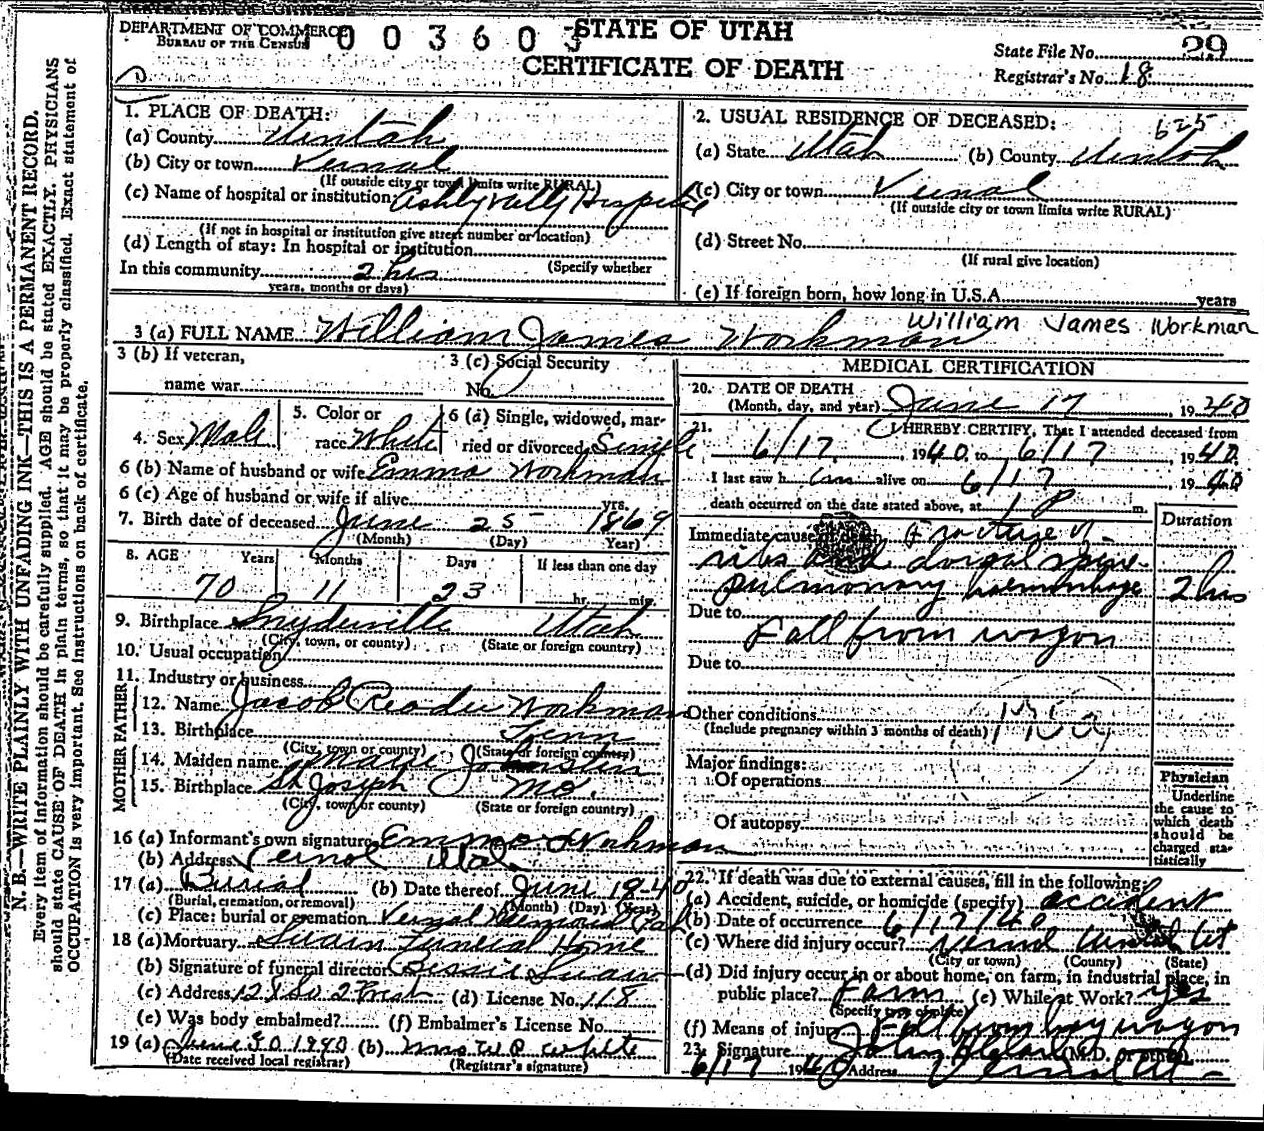 DEPARTMENT OF COMMERCE
BUREAU OF THE CENSUS
003603
STATE OF UTAH
CERTIFICATE OF DEATH
State File No. 29
Registrar's No. 18
N. B.—WRITE PLAINLY WITH UNFADING INK—THIS IS A PERMANENT RECORD.
Every item of information should be carefully supplied. AGE should be stated EXACTLY. PHYSICIANS
should state CAUSE OF DEATH in plain terms, so that it may be properly classified. Exact statement of
OCCUPATION is very important. See instructions on back of certificate.
1. PLACE OF DEATH:
(a) County Uintah
(b) City or town Vernal
(If outside city or town limits write RURAL)
(c) Name of hospital or institution Ashly Vally Hospital
(If not in hospital or institution give street number or location)
(d) Length of stay: In hospital or institution
In this community 2 hrs (Specify whether
years, months or days)
2. USUAL RESIDENCE OF DECEASED: 625
(a) State Utah (b) County Uintah
(c) City or town Vernal
(If outside city or town limits write RURAL)
(d) Street No.
(If rural give location)
(e) If foreign born, how long in U.S.A. years
3 (a) FULL NAME William James Workman
William James Workman
3 (b) If veteran,
name war
3 (c) Social Security
No.
4. Sex Male
5. Color or
race White
6 (a) Single, widowed, mar-
ried or divorced Single
6 (b) Name of husband or wife Emma Workman
6 (c) Age of husband or wife if alive yrs.
7. Birth date of deceased June 25 1869
(Month) (Day) Year)
8. AGE Years Months Days If less than one day
70 11 23 hr. min.
9. Birthplace Snyderville Utah
(City, town, or county) (State or foreign country)
10. Usual occupation
11. Industry or business
FATHER
12. Name Jacob Reader Workman
13. Birthplace Tenn
(City, town or county) (State or foreign country)
MOTHER
14. Maiden name Johnston
15. Birthplace St Joseph Mo.
(City, town or county) (State or foreign country)
16 (a) Informant's own signature Emma Workman
(b) Address Vernal Utah
17 (a) Burial (b) Date thereof June 19-40
(Burial, cremation, or removal) (Month) (Day) (Year)
(c) Place: burial or cremation Vernal Memorial Park
18 (a) Mortuary Swain Funeral Home
(b) Signature of funeral director Bessie Swain
(c) Address (d) License No. 118
(e) Was body embalmed? (f) Embalmer's License No.
19 (a) June 30 1940 (b) Mrs W P White
(Date received local registrar) (Registrar's signature)
MEDICAL CERTIFICATION
20. DATE OF DEATH
(Month, day, and year) June 17, 1940
21. I HEREBY CERTIFY, That I attended deceased from
6/17, 1940, to 6/17, 1940
I last saw h im alive on 6/17 1940
death occurred on the date stated above, at 1 P m.
Duration
Immediate cause of death Fracture of
ribs and dorsal spine
pulmonary haemorrhage 2 hrs
Due to
Fall from wagon
Due to
Other conditions
(Include pregnancy within 3 months of death)
Major findings:
Of operations
Of autopsy
Physician
Underline
the cause to
which death
should be
charged sta-
tistically
22. If death was due to external causes, fill in the following:
(a) Accident, suicide, or homicide (specify) accident
(b) Date of occurrence 6/17/40
(c) Where did injury occur? Vernal Uintah Ut
(City or town) (County) (State)
(d) Did injury occur in or about home, on farm, in industrial place, in
public place? Farm (e) While at Work? yes
(Specify type of place)
(f) Means of injury Fall from hay wagon
23. Signature (M.D. or other)
6/17 1940 Address Vernal Ut